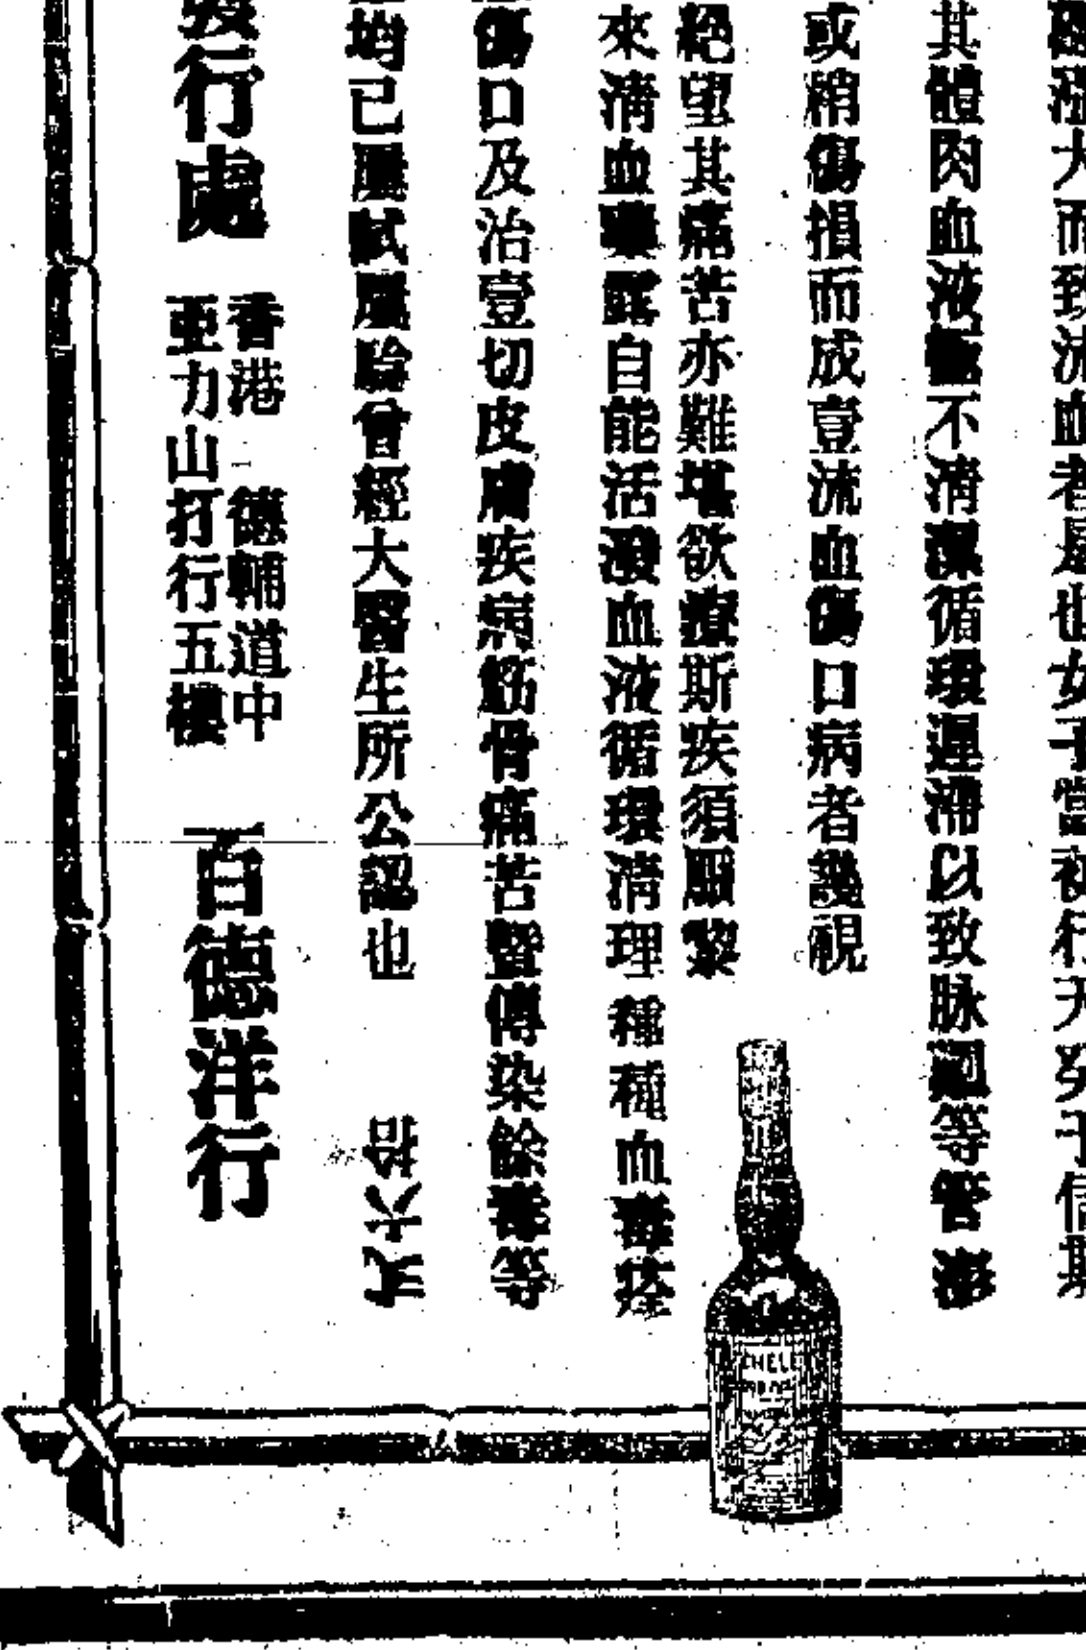 漲大而致流血者是也女子當初行天癸子信期
其體肉血液壅不清潔循環遲滯以致脉週等管澎
或稍傷損而成壹流血傷口病者謾視
絕望其痛苦亦難堪欲療斯疾須服黎
來清血藥露自能活潑血液循環清理種種血毒痊
傷口及治壹切皮膚疾病筋骨痛苦暨傳染餘毒等
均已屢試屢驗曾經大醫生所公認也 弍六拾
發行處 香港 德輔道中
亜力山打行五樓
百德洋行